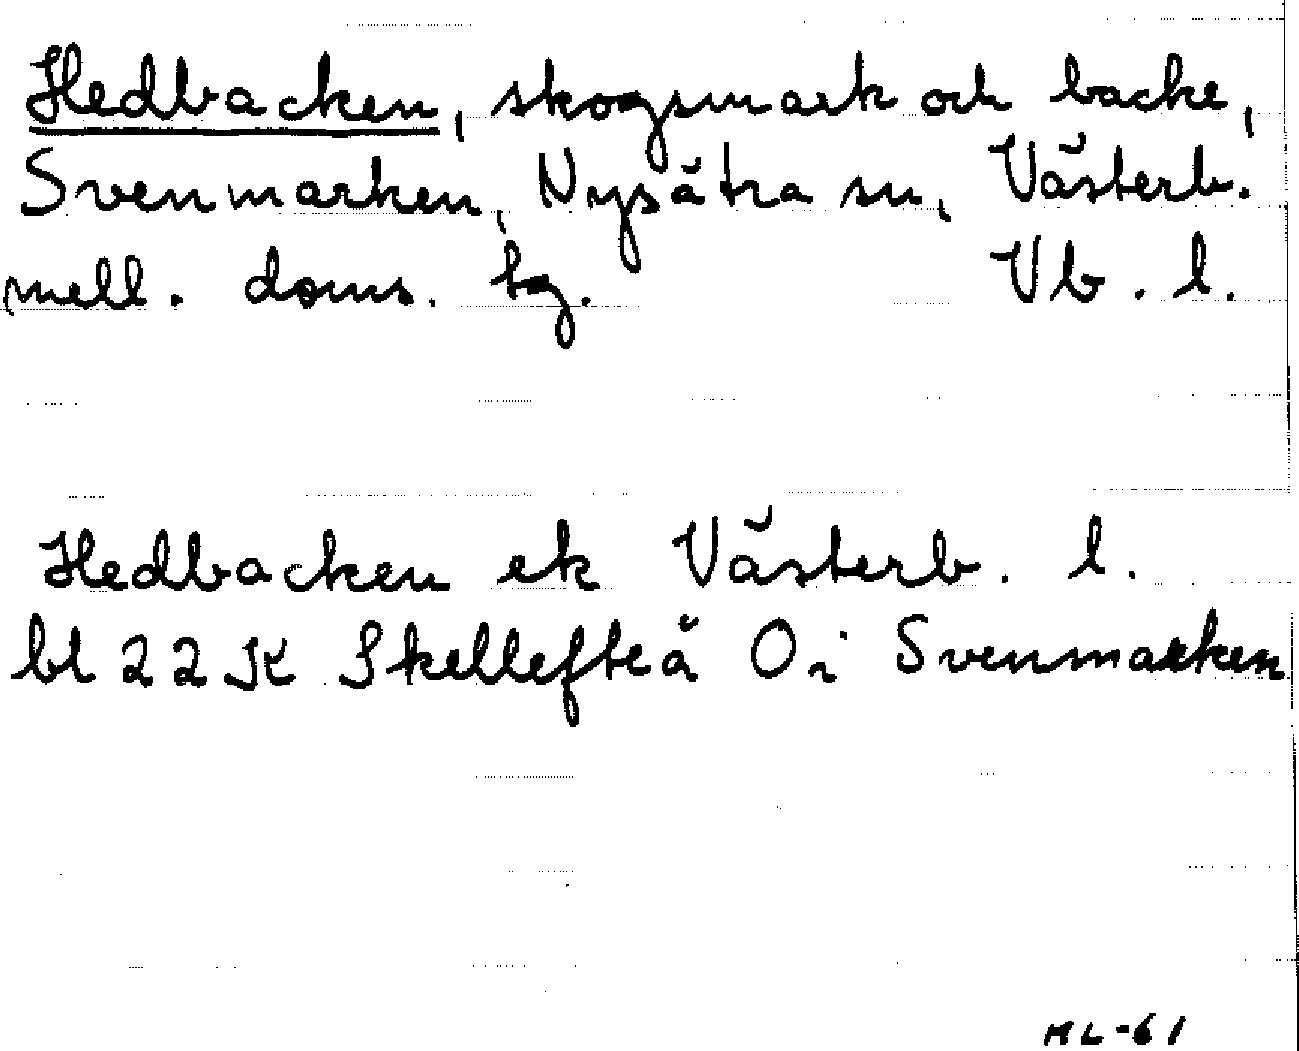 Hedbacken, skogsmark och backe,
Svenmarken, Nysätra sn, Västerb.
mell. doms. tg. Vb. l.
Hedbacken ek Västerb. l.
bl 22 K Skellefteå O i Svenmarken
ML-61